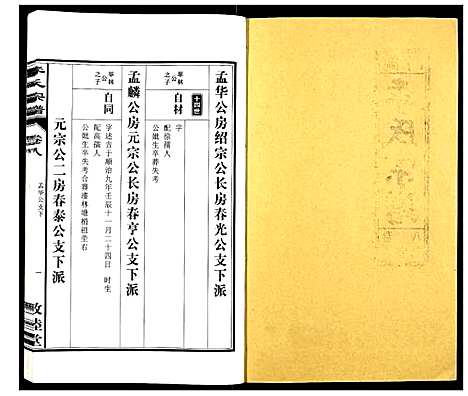 孟华公房绍宗公长房春光公支下派
十四世
萃林公之子
自材
字
配徐孺人
公妣生卒葬失考
孟麟公房元宗公长房春亨公支下派
萃林公之子
自同
字述吉于顺治九年壬辰十一月二十四日 时生
配高孺人
公妣生卒失考合葬漆林塘楯祖茔右
元宗公二房春泰公支下派
氏宗谱
卷八
孟华公支下
一
敦睦堂